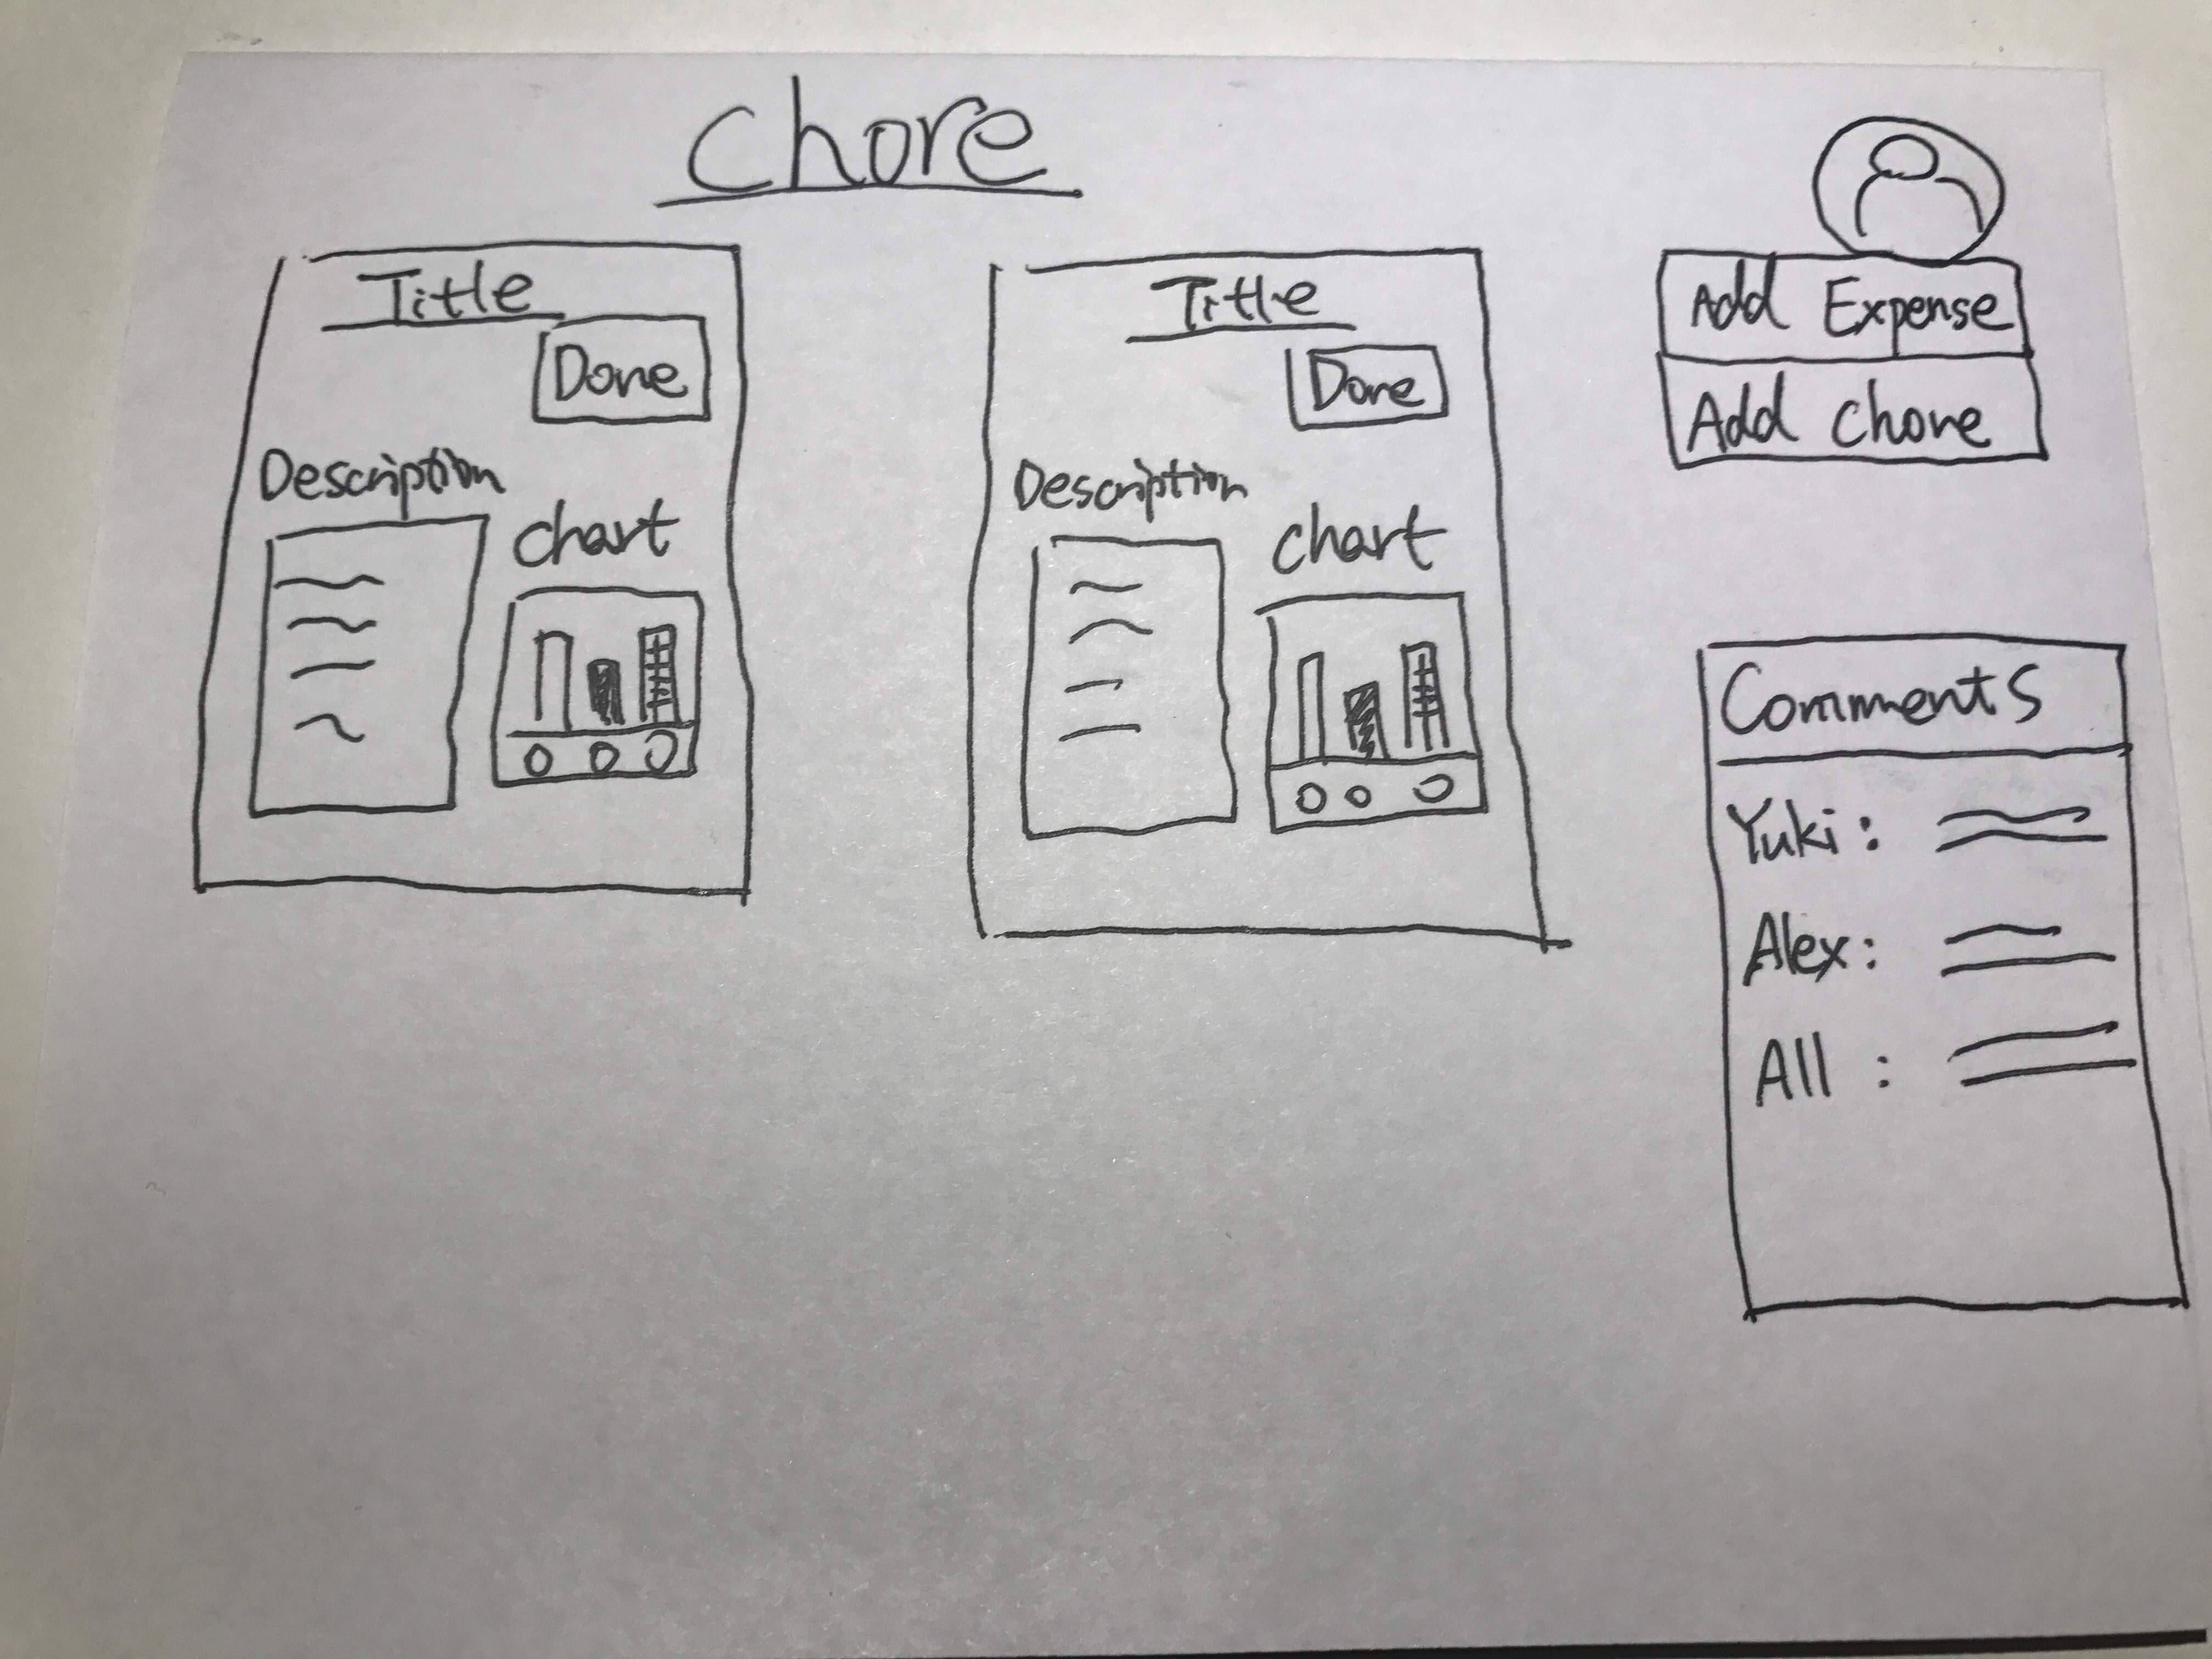 Chore
Title
Done
Description
chart
Title
Done
Description
chart
Add Expense
Add chore
Comments
Yuki :
Alex :
All :